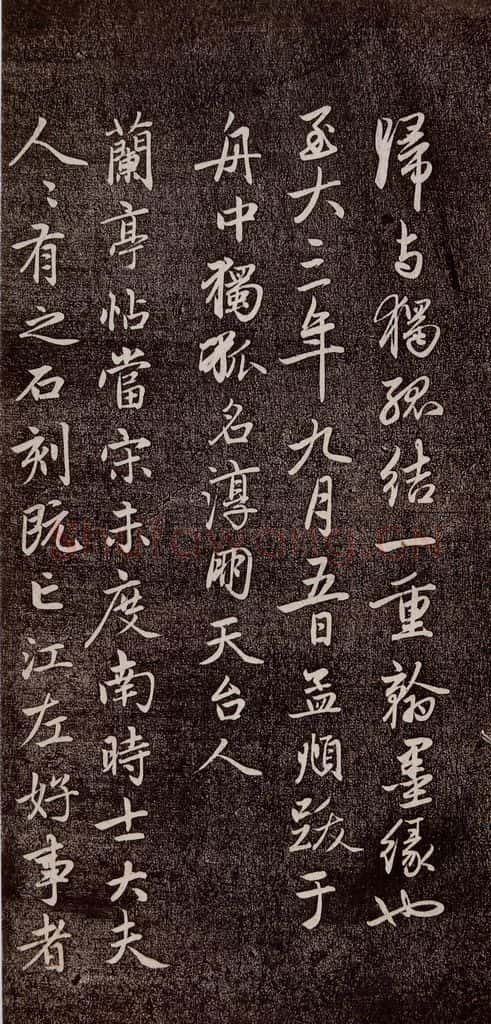 歸与獨孤結一重翰墨緣也
至大三年九月五日孟頫跋于
舟中獨孤名淳朋天台人
蘭亭帖當宋未度南時士大夫
人〻有之石刻既亡江左好事者